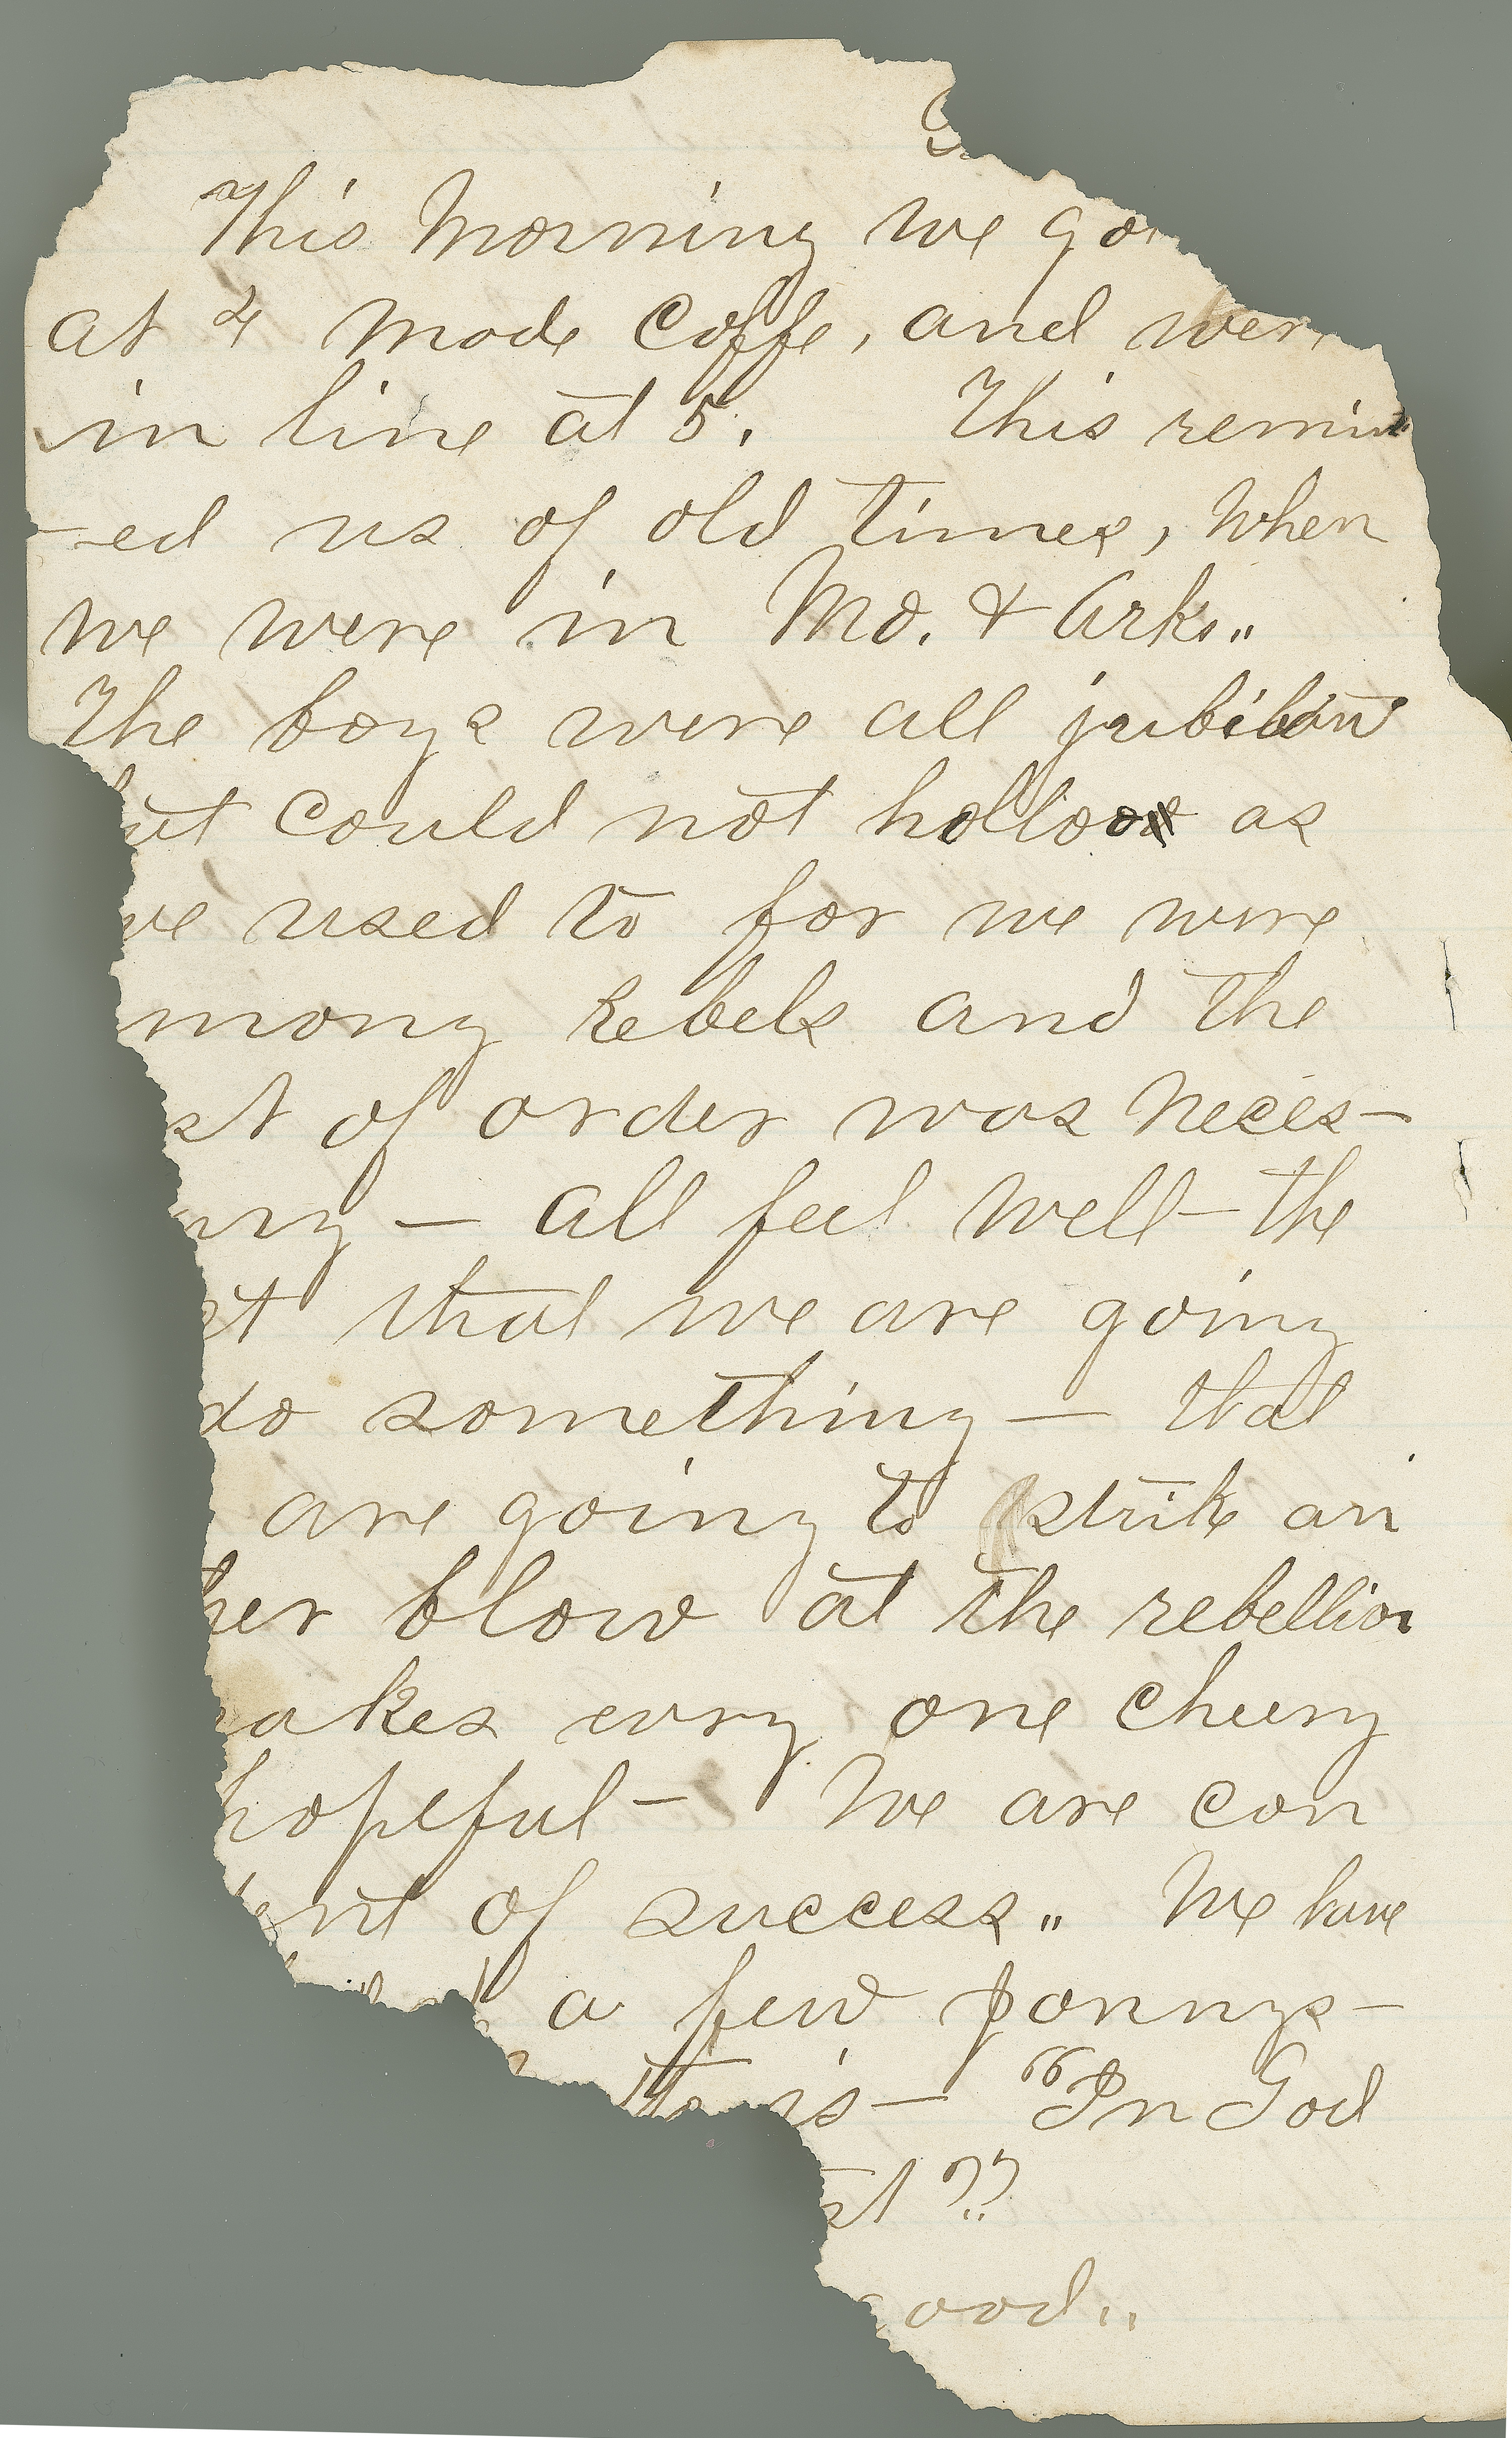 This Morning we go
at 4 made Coffe, and wer
in line at 5. This remin
-ed us of old times, when
we were in Mo. & Arks.
The boys were all jubilan
ut could not holloo as
we used to for we were
mong Rebels and the
st of order was neces-
ary — all feel well — the
st that we are going
do something — that
are going to strike an
her blow at the rebellion
akes evry one cheery
hopeful — We are con
ent of success. We have
a few ponnys —
is — "In God
st"
ood.